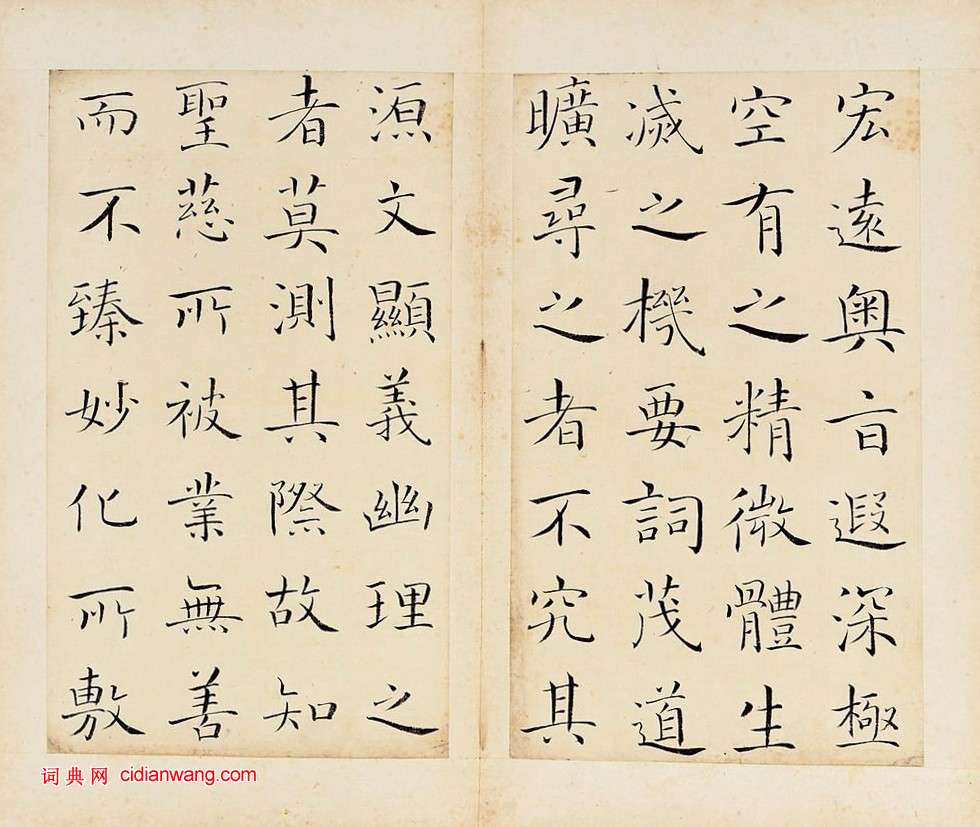 宏遠奥㫖遐深極
空有之精微體生
滅之機要詞茂道
曠尋之者不究其
源文顯義幽理之
者莫測其際故知
聖慈所被業無善
而不臻妙化所敷
词典网 cidianwang.com